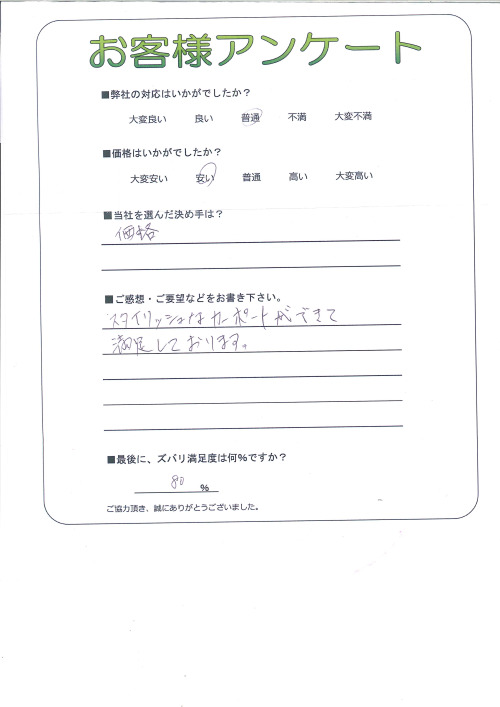 お客様アンケート
■弊社の対応はいかがでしたか？
大変良い 良い 普通 不満 大変不満
■価格はいかがでしたか？
大変安い 安い 普通 高い 大変高い
■当社を選んだ決め手は？
価格
■ご感想・ご要望などをお書き下さい。
スタイリッシュなカーポートができて
満足しております。
■最後に、ズバリ満足度は何%ですか？
80 %
ご協力頂き、誠にありがとうございました。